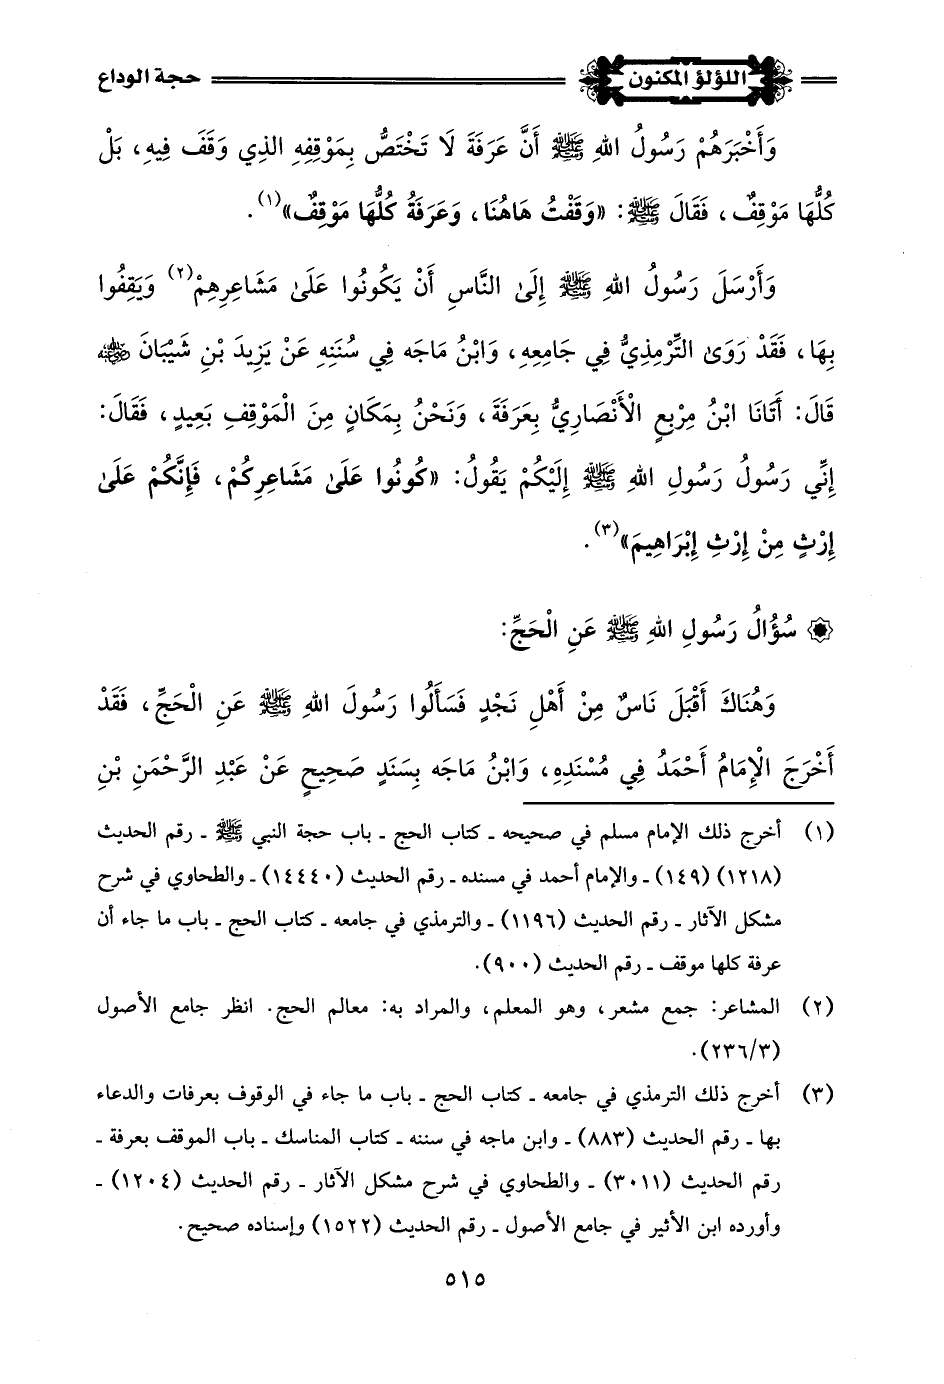 اللؤلؤ المكنون
حجة الوداع
وَأَخْبَرَهُمْ رَسُولُ اللهِ ﷺ أَنَّ عَرَفَةَ لَا تَخْتَصُّ بِمَوْقِفِهِ الذِي وَقَفَ فِيهِ، بَلْ
كُلُّهَا مَوْقِفٌ، فَقَالَ ﷺ: «وَقَفْتُ هَاهُنَا، وَعَرَفَةُ كُلُّهَا مَوْقِفٌ»(١).
وَأَرْسَلَ رَسُولُ اللهِ ﷺ إِلَىٰ النَّاسِ أَنْ يَكُونُوا عَلَىٰ مَشَاعِرِهِمْ(٢) وَيَقِفُوا
بِهَا، فَقَدْ رَوَىٰ التِّرْمِذِيُّ فِي جَامِعِهِ، وَابْنُ مَاجَه فِي سُنَنِهِ عَنْ يَزِيدَ بْنِ شَيْبَانَ رضي الله عنه
قَالَ: أَتَانَا ابْنُ مِرْبَعٍ الْأَنْصَارِيُّ بِعَرَفَةَ، وَنَحْنُ بِمَكَانٍ مِنَ الْمَوْقِفِ بَعِيدٍ، فَقَالَ:
إِنِّي رَسُولُ رَسُولِ اللهِ ﷺ إِلَيْكُمْ يَقُولُ: «كُونُوا عَلَىٰ مَشَاعِرِكُمْ، فَإِنَّكُمْ عَلَىٰ
إِرْثٍ مِنْ إِرْثِ إِبْرَاهِيمَ»(٣).
سُؤَالُ رَسُولِ اللهِ ﷺ عَنِ الْحَجِّ:
وَهُنَاكَ أَقْبَلَ نَاسٌ مِنْ أَهْلِ نَجْدٍ فَسَأَلُوا رَسُولَ اللهِ ﷺ عَنِ الْحَجِّ، فَقَدْ
أَخْرَجَ الْإِمَامُ أَحْمَدُ فِي مُسْنَدِهِ، وَابْنُ مَاجَه بِسَنَدٍ صَحِيحٍ عَنْ عَبْدِ الرَّحْمَنِ بْنِ
(١) أخرج ذلك الإمام مسلم في صحيحه ـ كتاب الحج ـ باب حجة النبي ﷺ ـ رقم الحديث
(١٢١٨) (١٤٩) ـ والإمام أحمد في مسنده ـ رقم الحديث (١٤٤٤٠) ـ والطحاوي في شرح
مشكل الآثار ـ رقم الحديث (١١٩٦) ـ والترمذي في جامعه ـ كتاب الحج ـ باب ما جاء أن
عرفة كلها موقف ـ رقم الحديث (٩٠٠).
(٢) المشاعر: جمع مشعر، وهو المعلم، والمراد به: معالم الحج. انظر جامع الأصول
(٢٣٦/٣).
(٣) أخرج ذلك الترمذي في جامعه ـ كتاب الحج ـ باب ما جاء في الوقوف بعرفات والدعاء
بها ـ رقم الحديث (٨٨٣) ـ وابن ماجه في سننه ـ كتاب المناسك ـ باب الموقف بعرفة ـ
رقم الحديث (٣٠١١) ـ والطحاوي في شرح مشكل الآثار ـ رقم الحديث (١٢٠٤) ـ
وأورده ابن الأثير في جامع الأصول ـ رقم الحديث (١٥٢٢) وإسناده صحيح.
٥١٥